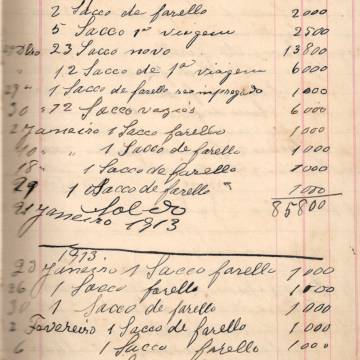 2 Sacco de farello 2000
5 Sacco 1ª viagem 2500
23 Sacco novo 13800
" 12 Sacco de 1ª viagem 6000
29 " 1 Sacco de farello 1000
30 " 12 Sacco vazios 6000
2 Janeiro 1 Sacco farello 1000
10 " 1 Sacco de farello 1000
18 " 1 Sacco de farello 1000
29 1 Sacco de farello " 1000
Soldo 85800
31 Janeiro 1913
1913
23 Janeiro 1 Sacco farello 1000
26 1 Sacco farello 1000
30 1 Sacco de farello 1000
2 Fevereiro 1 Sacco de farello 1000
6 " 1 Sacco de farello 1000